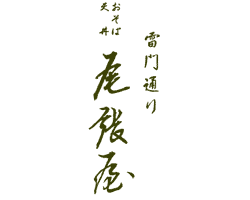 雷門通り
おそば
天丼
尾張屋